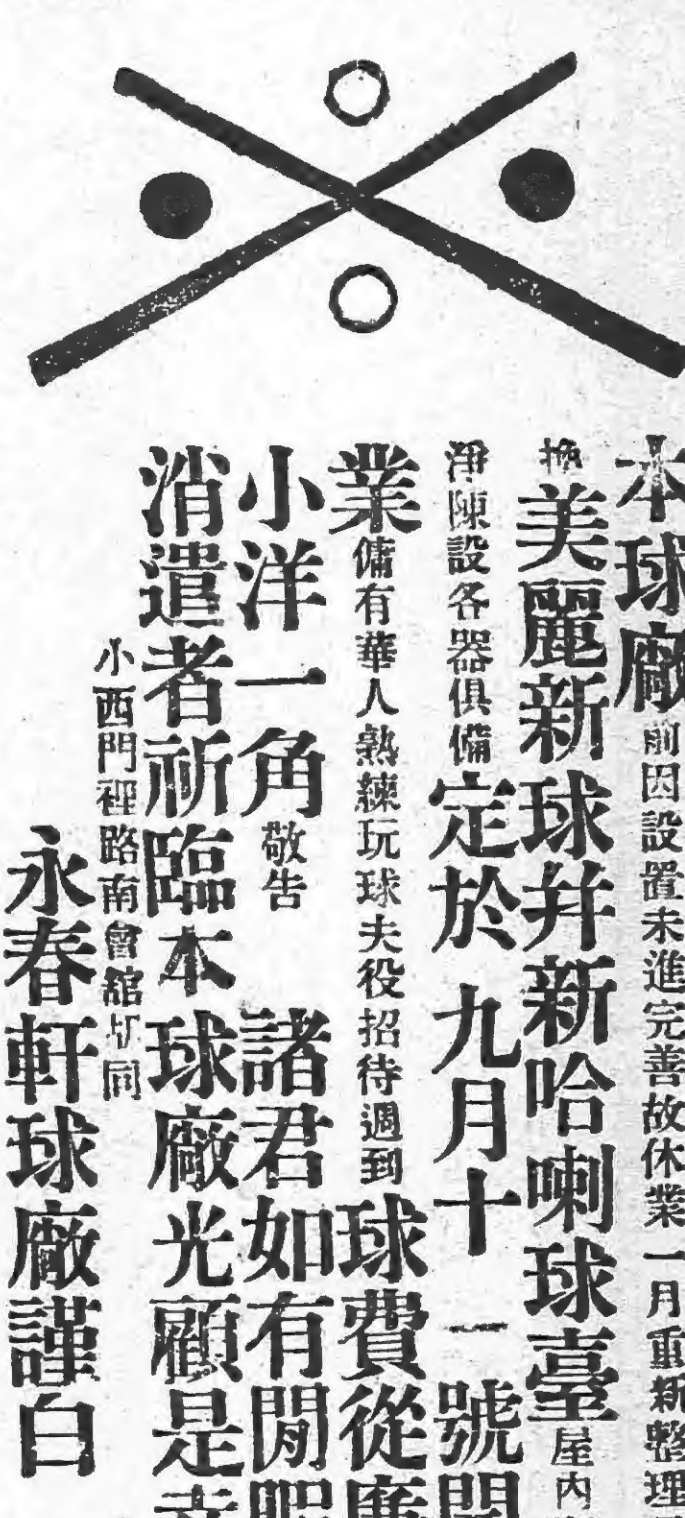 本球廠前因設置未進完善故休業一月重新整理
換美麗新球并新哈喇球臺屋内
淨陳設各器俱備定於九月十一號開
業傭有華人熟練玩球夫役招待週到球費從廉
小洋一角敬告 諸君如有閒暇
消遣者祈臨本球廠光顧是幸
小西門裡路南會舘胡同
永春軒球廠謹白